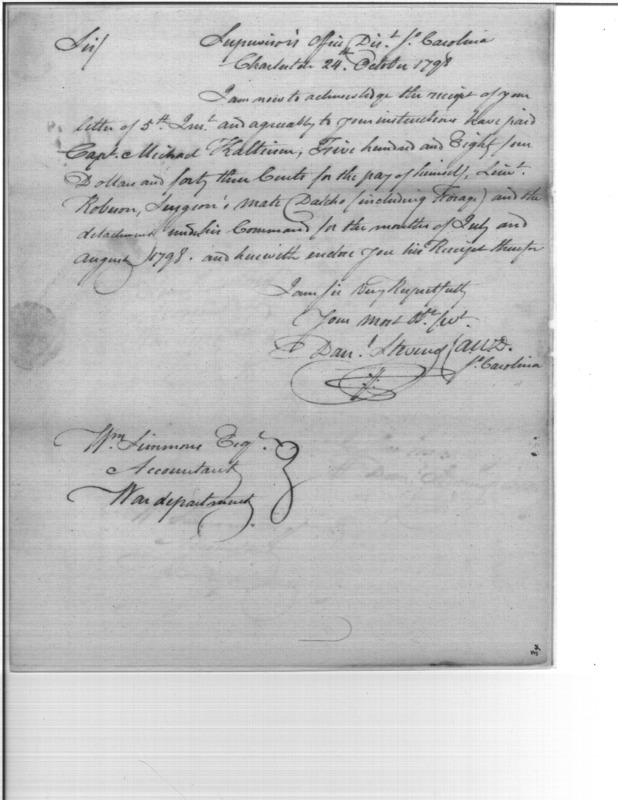 Sir/ Supervisor's Office Dist. So. Carolina
Charleston 24th. October 1798
I am now to acknowledge the receipt of your
letter of 5th. Inst. and agreeably to your instructions have paid
Capt. Michael Kalteisen, Five hundred and Eighty four
Dollars and forty three Cents for the pay of himself, Lieut.
Robeson, Surgeon's mate Dalcho (including Forage) and the
detachment under his Command for the months of July and
august 1798. and herewith enclose you his Receipt therefor
I am Sir Very Respectfully
Your most Ob. Servt.
Danl. Stevens
So. Carolina
Wm Simmons Esqr.
Accountant
War department